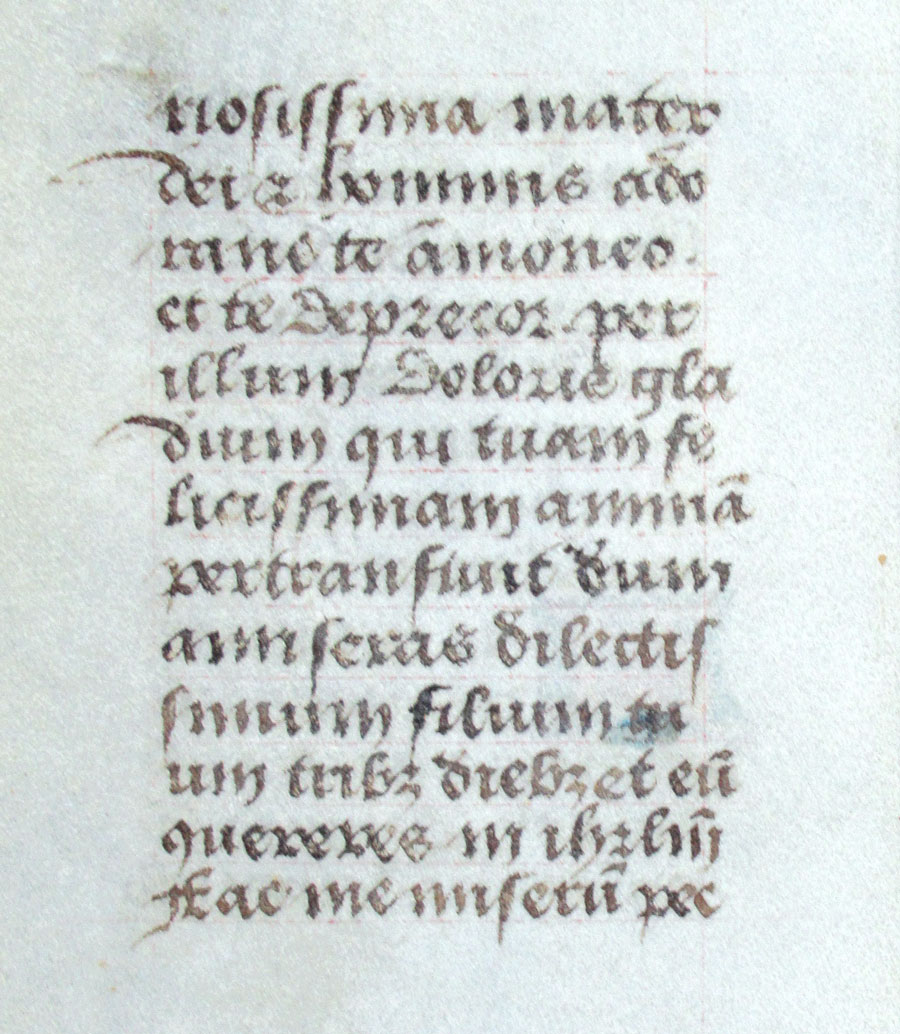 riosissima mater
dei ⁊ hominis ado
rans te āmoneo.
et te deprecor per
illum doloris gla
dium qui tuam fe
licissimam animā
pertransiuit dum
amiseras dilectis
simum filium tu
um tribꝫ diebꝫ et eū
quereres in ihrlm̄
Fac me miserū pec